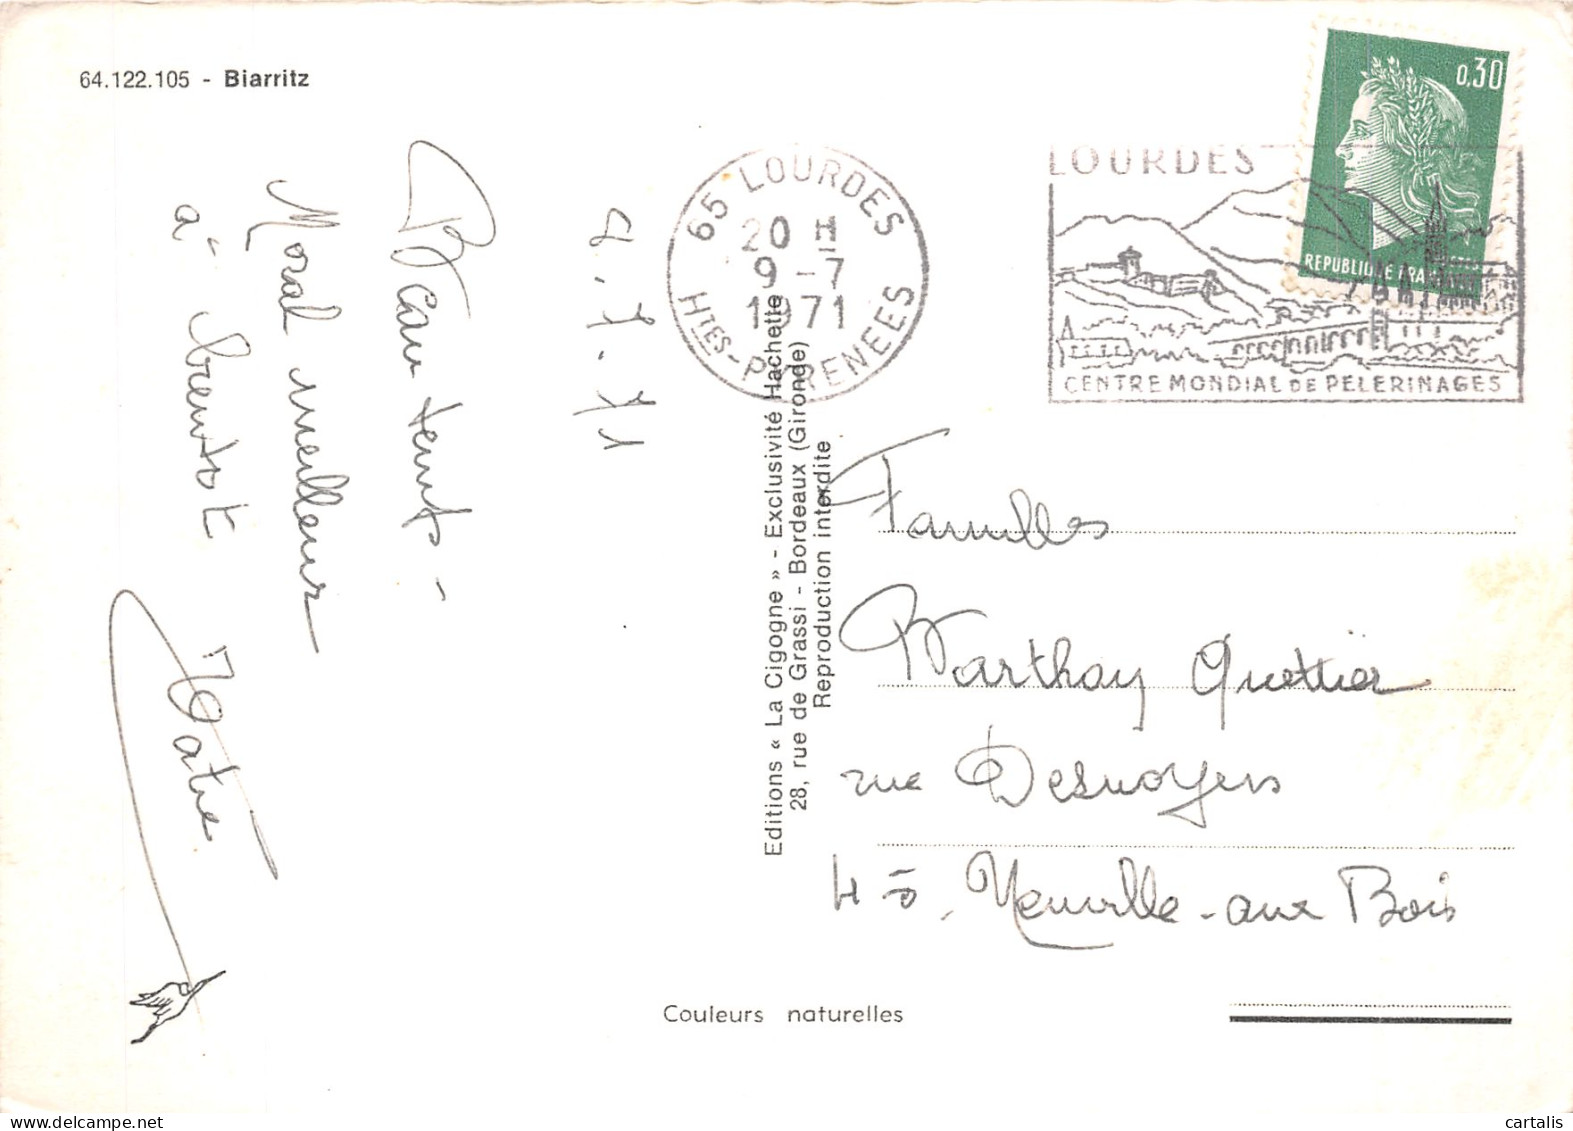 64.122.105 - Biarritz
Beau temps -
Moral meilleur
à bientôt
65 LOURDES
20 H
9 - 7
1971
HTES-PYRENEES
LOURDES
CENTRE MONDIAL DE PELERINAGES
0,30
REPUBLIQUE FRA
Editions « La Cigogne » - Exclusivité Hachette
28, rue de Grassi - Bordeaux (Gironde)
Reproduction interdite
Familles
Barthay Quettier
rue Desnoyers
45, Neuville-aux Bois
Couleurs naturelles
cartalis